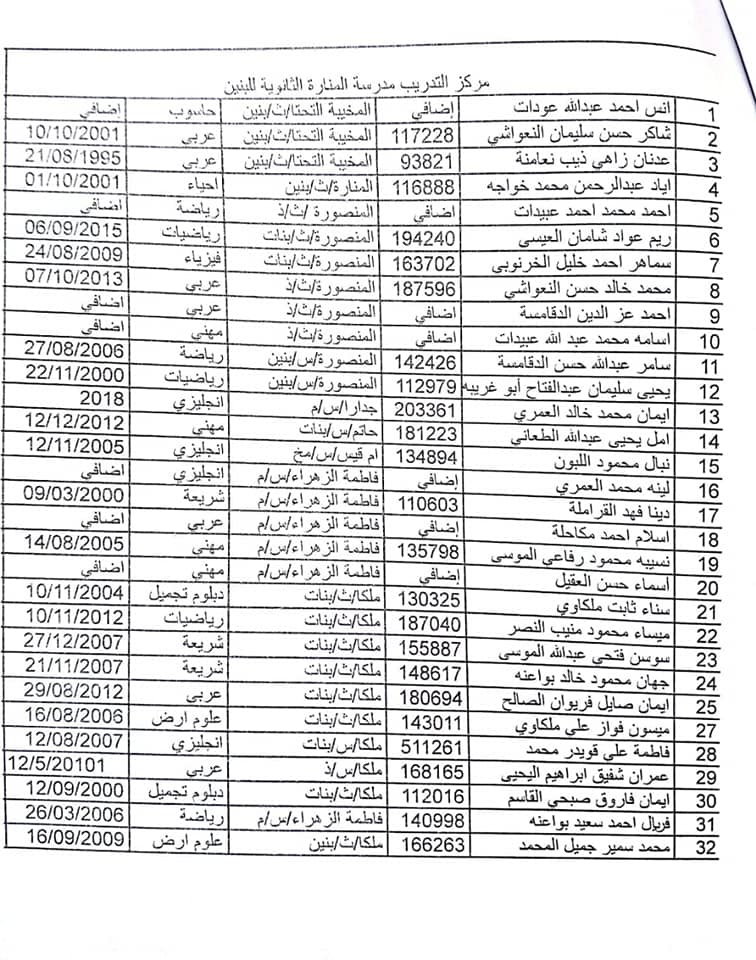 مركز التدريب مدرسة المنارة الثانوية للبنين
1 انس احمد عبدالله عودات إضافي المخيبة التحتا/ث/بنين حاسوب إضافي
2 شاكر حسن سليمان النعواشي 117228 المخيبة التحتا/ث/بنين عربي 10/10/2001
3 عدنان زاهي ذيب نعامنة 93821 المخيبة التحتا/ث/بنين عربي 21/08/1995
4 اياد عبدالرحمن محمد خواجه 116888 المنارة/ث/بنين احياء 01/10/2001
5 احمد محمد احمد عبيدات إضافي المنصورة /ث/ذ رياضة اضافي
6 ريم عواد شامان العيسى 194240 المنصورة/ث/بنات رياضيات 06/09/2015
7 سماهر احمد خليل الخرنوبي 163702 المنصورة/ث/بنات فيزياء 24/08/2009
8 محمد خالد حسن النعواشي 187596 المنصورة/ث/ذ عربي 07/10/2013
9 احمد عز الدين الدقامسة اضافي المنصورة/ث/ذ عربي اضافي
10 اسامه محمد عبد الله عبيدات اضافي المنصورة/ث/ذ مهني اضافي
11 سامر عبدالله حسن الدقامسة 142426 المنصورة/س/بنين رياضة 27/08/2006
12 يحيى سليمان عبدالفتاح أبو غريبه 112979 المنصورة/س/بنين رياضيات 22/11/2000
13 ايمان محمد خالد العمري 203361 جدارا/س/م انجليزي 2018
14 امل يحيى عبدالله الطعاني 181223 حاتم/س/بنات مهني 12/12/2012
15 نبال محمود اللبون 134894 ام قيس/س/مخ انجليزي 12/11/2005
16 لينه محمد العمري إضافي فاطمة الزهراء/س/م انجليزي اضافي
17 دينا فهد القراملة 110603 فاطمة الزهراء/س/م شريعة 09/03/2000
18 اسلام احمد مكاحلة إضافي فاطمة الزهراء/س/م عربي اضافي
19 نسيبه محمود رفاعي الموسى 135798 فاطمة الزهراء/س/م مهني 14/08/2005
20 أسماء حسن العقيل إضافي فاطمة الزهراء/س/م مهني اضافي
21 سناء ثابت ملكاوي 130325 ملكا/ث/بنات دبلوم تجميل 10/11/2004
22 ميساء محمود منيب النصر 187040 ملكا/ث/بنات رياضيات 10/11/2012
23 سوسن فتحي عبدالله الموسى 155887 ملكا/ث/بنات شريعة 27/12/2007
24 جهان محمود خالد بواعنه 148617 ملكا/ث/بنات شريعة 21/11/2007
25 ايمان صايل فريوان الصالح 180694 ملكا/ث/بنات عربي 29/08/2012
27 ميسون فواز علي ملكاوي 143011 ملكا/ث/بنات علوم ارض 16/08/2006
28 فاطمة علي قويدر محمد 511261 ملكا/س/بنات انجليزي 12/08/2007
29 عمران شفيق ابراهيم اليحيى 168165 ملكا/س/ذ عربي 12/5/20101
30 ايمان فاروق صبحي القاسم 112016 ملكا/ث/بنات دبلوم تجميل 12/09/2000
31 فريال احمد سعيد بواعنه 140998 فاطمة الزهراء/س/م رياضة 26/03/2006
32 محمد سمير جميل المحمد 166263 ملكا/ث/بنين علوم ارض 16/09/2009